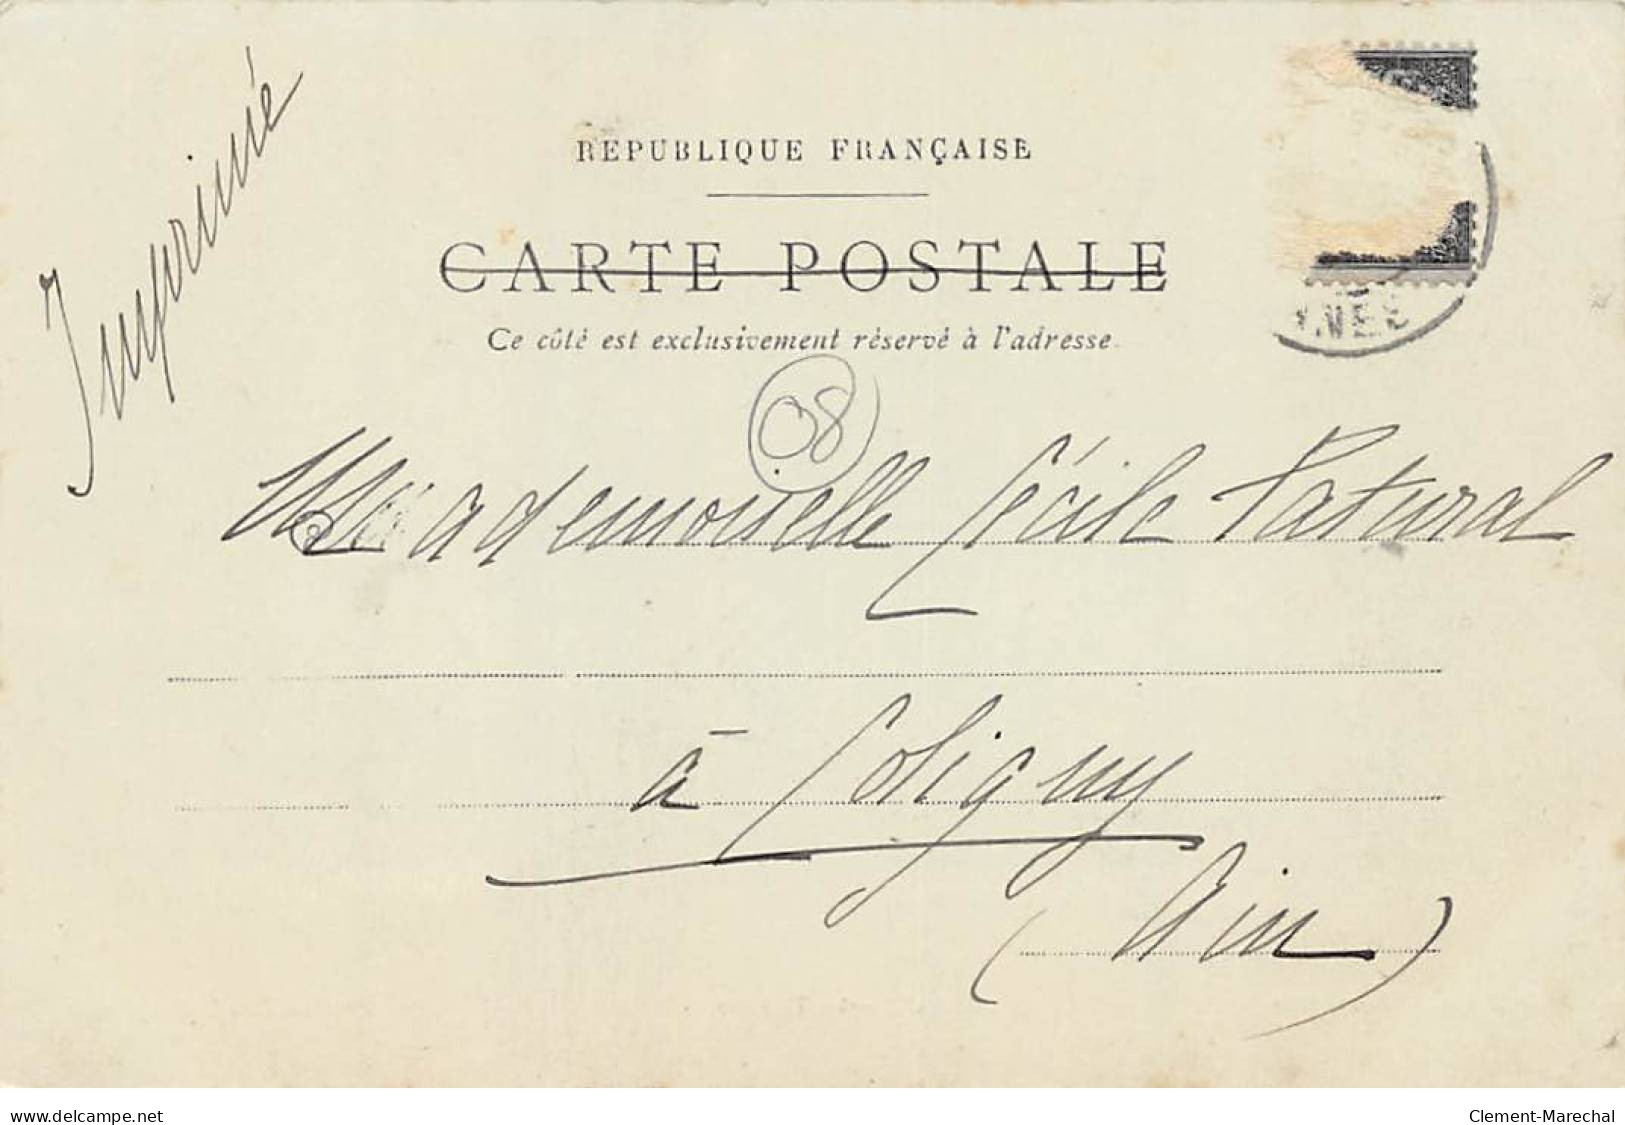 Imprimé
REPUBLIQUE FRANÇAISE
CARTE POSTALE
Ce côté est exclusivement réservé à l'adresse
08
Mademoiselle Cécile Patural
à Coligny
(Ain)
www.delcampe.net
Clement-Marechal